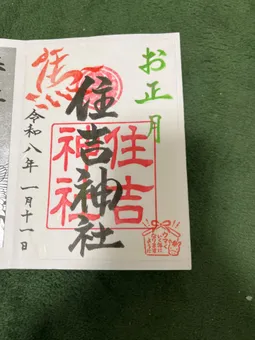 お正月
住吉神社
住吉
神社
令和八年 一月十一日